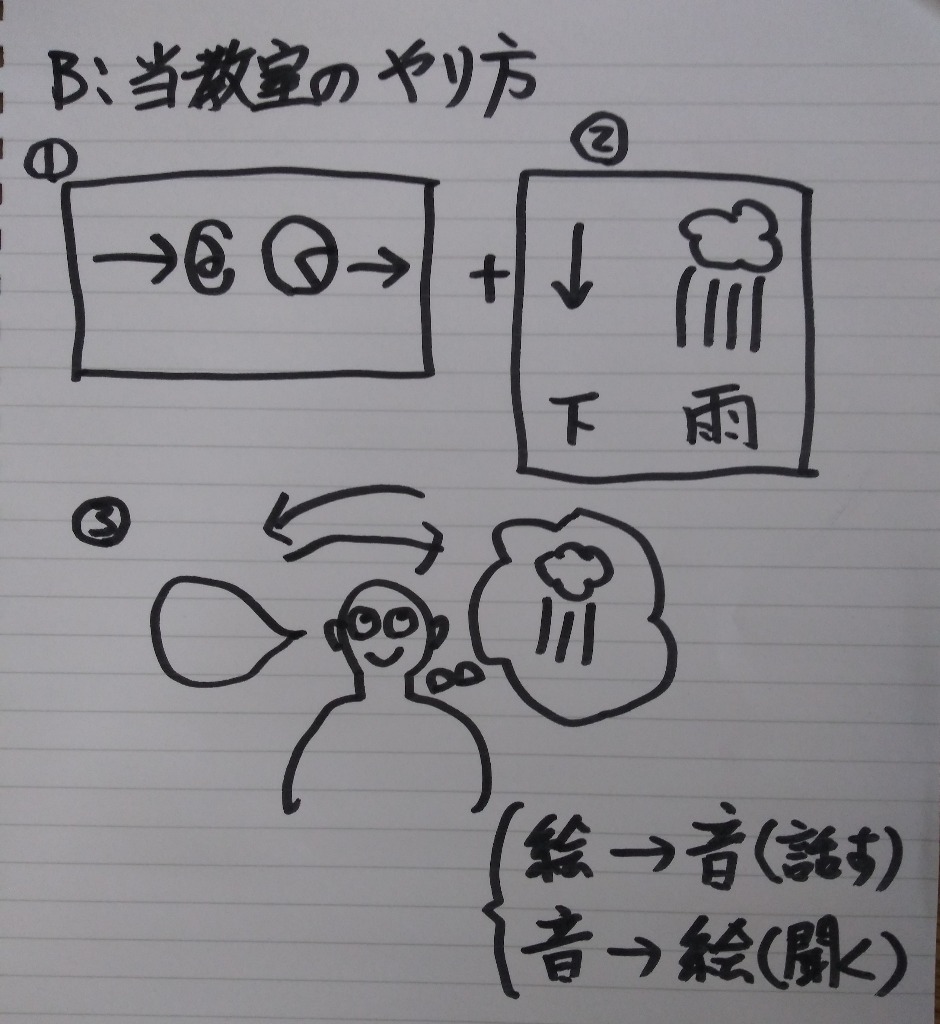 B:当教室のやり方
①
②
+
下 雨
③
絵→音(話す)
音→絵(聞く)